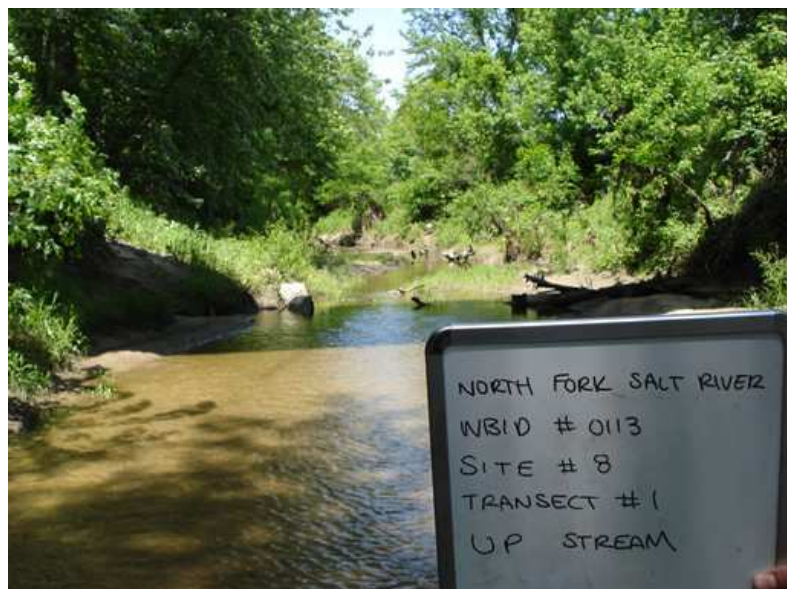 NORTH FORK SALT RIVER
WBID # 0113
SITE # 8
TRANSECT # 1
UP STREAM